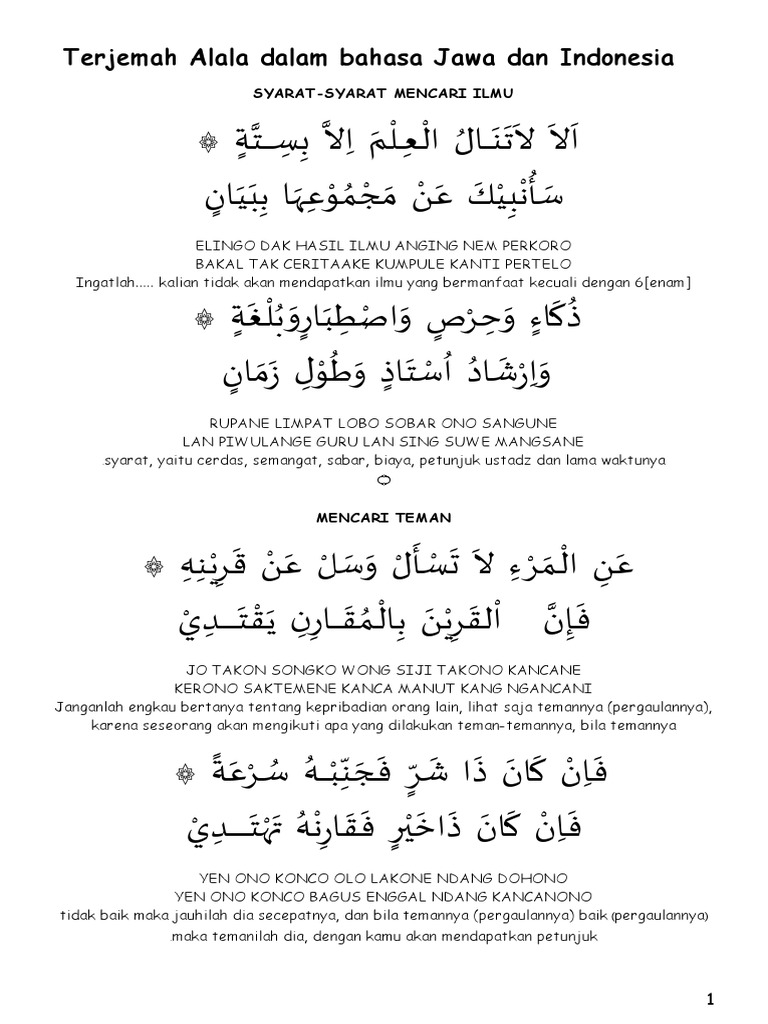 Terjemah Alala dalam bahasa Jawa dan Indonesia
SYARAT-SYARAT MENCARI ILMU
اَلاَ لاَتَنَالُ الْعِلْمَ اِلاَّ بِسِتَّةٍ ۞
سَأُنْبِيْكَ عَنْ مَجْمُوْعِهَا بِبَيَانٍ
ELINGO DAK HASIL ILMU ANGING NEM PERKORO
BAKAL TAK CERITAAKE KUMPULE KANTI PERTELO
Ingatlah..... kalian tidak akan mendapatkan ilmu yang bermanfaat kecuali dengan 6[enam]
ذُكَاءٍ وَحِرْصٍ وَاصْطِبَارٍوَبُلْغَةٍ ۞
وَاِرْشَادُ اُسْتَاذٍ وَطُوْلِ زَمَانٍ
RUPANE LIMPAT LOBO SOBAR ONO SANGUNE
LAN PIWULANGE GURU LAN SING SUWE MANGSANE
.syarat, yaitu cerdas, semangat, sabar, biaya, petunjuk ustadz dan lama waktunya
MENCARI TEMAN
عَنِ الْمَرْءِ لاَ تَسْأَلْ وَسَلْ عَنْ قَرِيْنِهِ ۞
فَإِنَّ اْلقَرِيْنَ بِالْمُقَارِنِ يَقْتَدِيْ
JO TAKON SONGKO WONG SIJI TAKONO KANCANE
KERONO SAKTEMENE KANCA MANUT KANG NGANCANI
Janganlah engkau bertanya tentang kepribadian orang lain, lihat saja temannya (pergaulannya),
karena seseorang akan mengikuti apa yang dilakukan teman-temannya, bila temannya
فَاِنْ كَانَ ذَا شَرٍّ فَجَنِّبْهُ سُرْعَةً ۞
فَاِنْ كَانَ ذَاخَيْرٍ فَقَارِنْهُ تَهْتَدِيْ
YEN ONO KONCO OLO LAKONE NDANG DOHONO
YEN ONO KONCO BAGUS ENGGAL NDANG KANCANONO
tidak baik maka jauhilah dia secepatnya, dan bila temannya (pergaulannya) baik (pergaulannya)
.maka temanilah dia, dengan kamu akan mendapatkan petunjuk
1